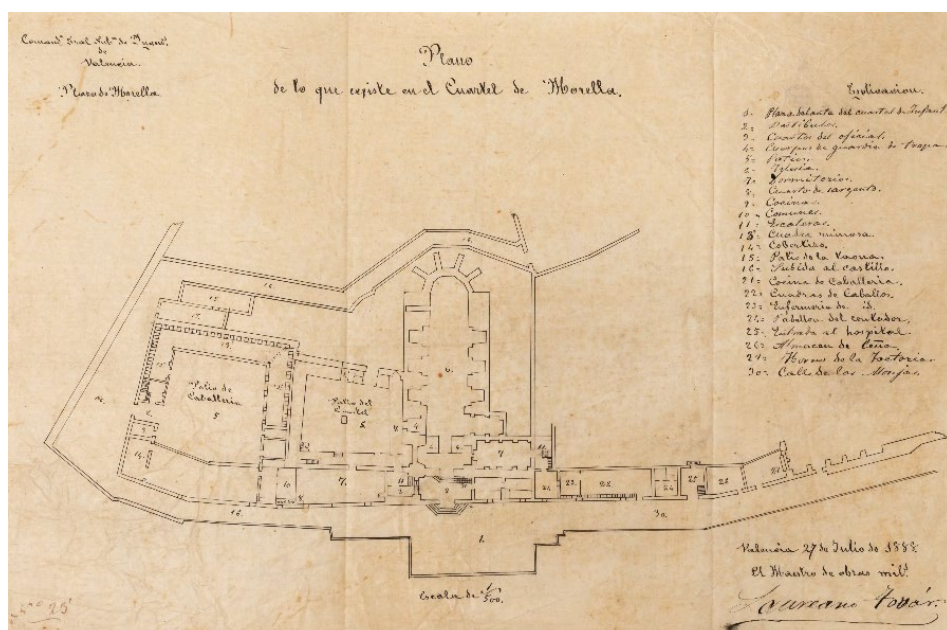 Comand.ª Gral. Sub.ⁿ de Ingen.ˢ
de
Valencia.
Plaza de Morella
Plano
de lo que existe en el Cuartel de Morella.
Esplicacion.
1- Plaza delante del cuartel de Infant
2- Vestibulo.
3- Cuartos del oficial.
4- Cuerpos de guardia de tropa.
5- Patios.
6- Iglesia.
7- Dormitorios.
8- Cuarto de sargento.
9- Cocina.
10- Comunes.
11- Escaleras.
13- Cuadra
14- Cobertizo.
15- Patio de la
16- Subida al castillo.
21- Cocina de Caballeria.
22- Cuadras de Caballos.
23- Enfermeria de id.
24- Pabellon del contador.
25- Entrada al hospital.
26- Almacen de leña.
29- Horno de la Factoria.
30- Calle de las Monjas.
16.
15.
6.
Patio de
Caballeria
5
Patio del
Cuartel
5
14
7
10
7.
21
22
22
24
25
26
30
16
1.
Escala de 1/500.
Valencia 27 de Julio de 1888.
El Maestro de obras mil.ˢ
Laureano Továr.
Nº 25